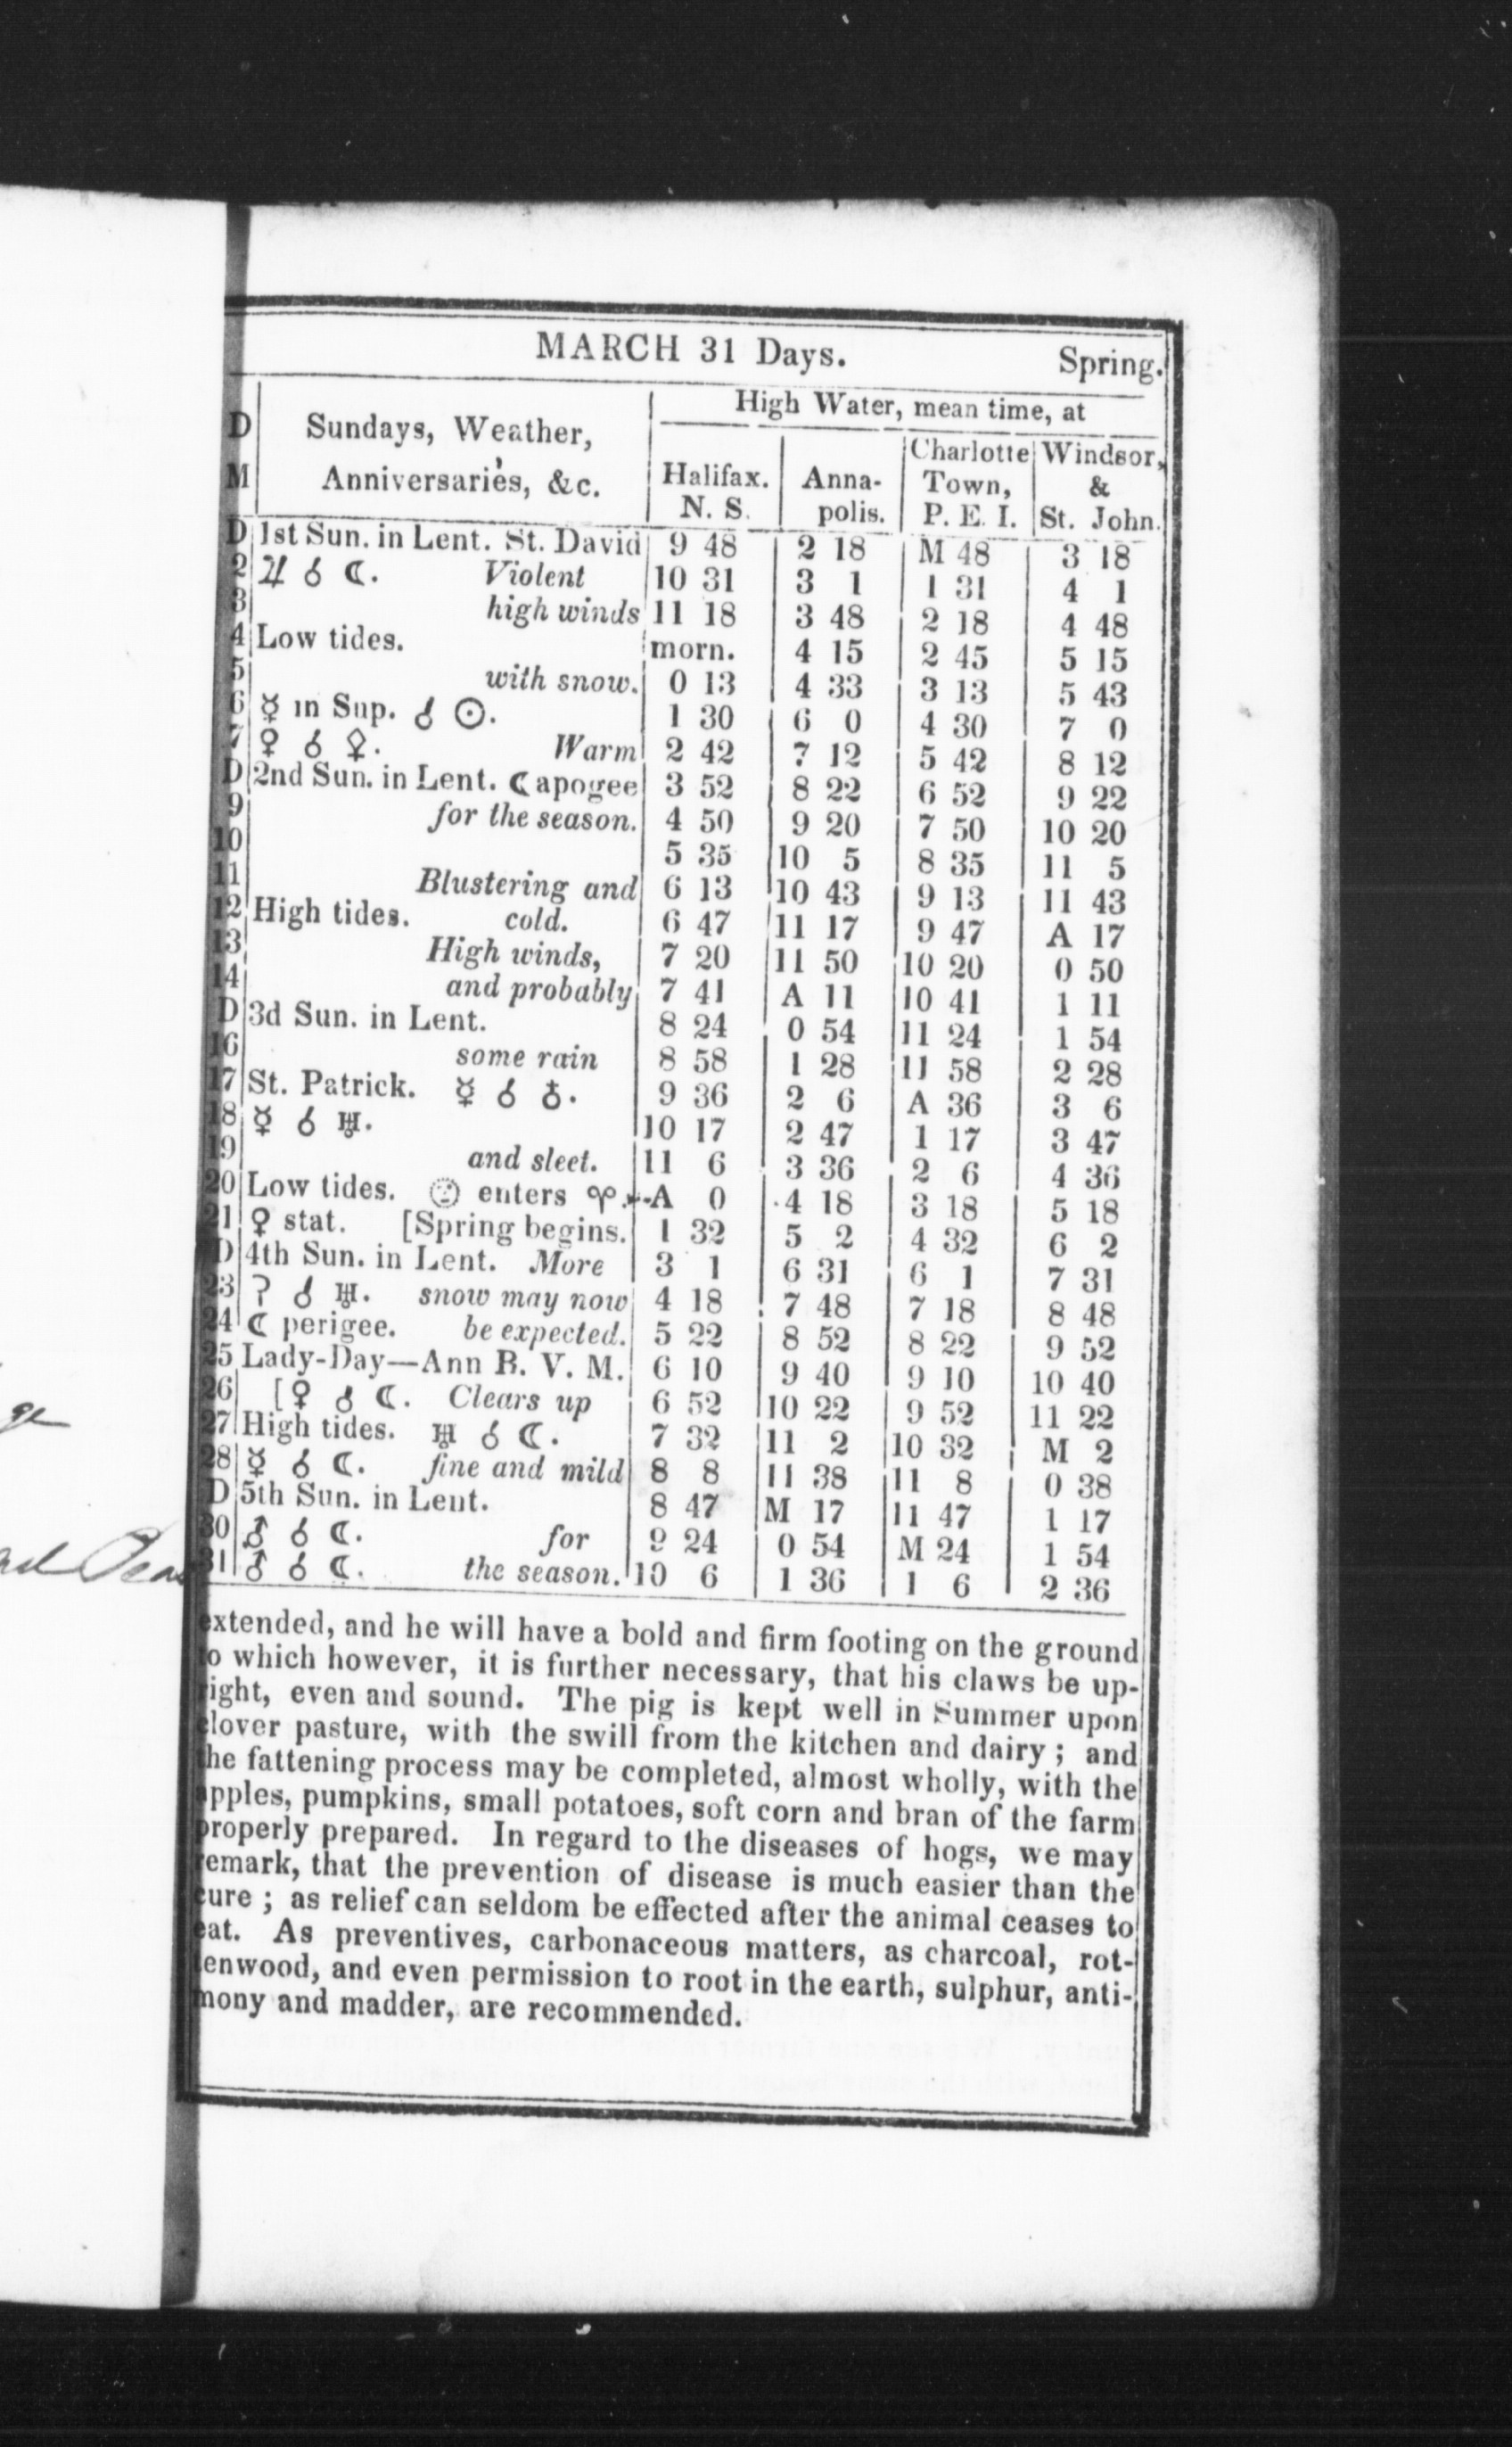 MARCH 31 Days. Spring.
High Water, mean time, at
D M Sundays, Weather, Anniversaries, &c. Halifax. N. S. Annapolis. Charlotte Town, P. E. I. Windsor, & St. John.
D 1st Sun. in Lent. St. David 9 48 2 18 M 48 3 18
2 ♃ ☌ ☾. Violent 10 31 3 1 1 31 4 1
3 high winds 11 18 3 48 2 18 4 48
4 Low tides. morn. 4 15 2 45 5 15
5 with snow. 0 13 4 33 3 13 5 43
6 ☿ in Sup. ☌ ☉. 1 30 6 0 4 30 7 0
7 ♀ ☌ ⚴. Warm 2 42 7 12 5 42 8 12
D 2nd Sun. in Lent. ☾ apogee 3 52 8 22 6 52 9 22
9 for the season. 4 50 9 20 7 50 10 20
10 5 35 10 5 8 35 11 5
11 Blustering and 6 13 10 43 9 13 11 43
12 High tides. cold. 6 47 11 17 9 47 A 17
13 High winds, 7 20 11 50 10 20 0 50
14 and probably 7 41 A 11 10 41 1 11
D 3d Sun. in Lent. 8 24 0 54 11 24 1 54
16 some rain 8 58 1 28 11 58 2 28
17 St. Patrick. ☿ ☌ ♁. 9 36 2 6 A 36 3 6
18 ☿ ☌ ♅. 10 17 2 47 1 17 3 47
19 and sleet. 11 6 3 36 2 6 4 36
20 Low tides. ☉ enters ♈. A 0 4 18 3 18 5 18
21 ♀ stat. [Spring begins. 1 32 5 2 4 32 6 2
D 4th Sun. in Lent. More 3 1 6 31 6 1 7 31
23 ☌ ♅. snow may now 4 18 7 48 7 18 8 48
24 ☾ perigee. be expected. 5 22 8 52 8 22 9 52
25 Lady-Day—Ann B. V. M. 6 10 9 40 9 10 10 40
26 [♀ ☌ ☾. Clears up 6 52 10 22 9 52 11 22
27 High tides. ♅ ☌ ☾. 7 32 11 2 10 32 M 2
28 ☿ ☌ ☾. fine and mild 8 8 11 38 11 8 0 38
D 5th Sun. in Lent. 8 47 M 17 11 47 1 17
30 ♂ ☌ ☾. for 9 24 0 54 M 24 1 54
31 ♂ ☌ ☾. the season. 10 6 1 36 1 6 2 36
extended, and he will have a bold and firm footing on the ground
to which however, it is further necessary, that his claws be up-
right, even and sound. The pig is kept well in Summer upon
clover pasture, with the swill from the kitchen and dairy ; and
the fattening process may be completed, almost wholly, with the
apples, pumpkins, small potatoes, soft corn and bran of the farm
properly prepared. In regard to the diseases of hogs, we may
remark, that the prevention of disease is much easier than the
cure ; as relief can seldom be effected after the animal ceases to
eat. As preventives, carbonaceous matters, as charcoal, rot-
tenwood, and even permission to root in the earth, sulphur, anti-
mony and madder, are recommended.